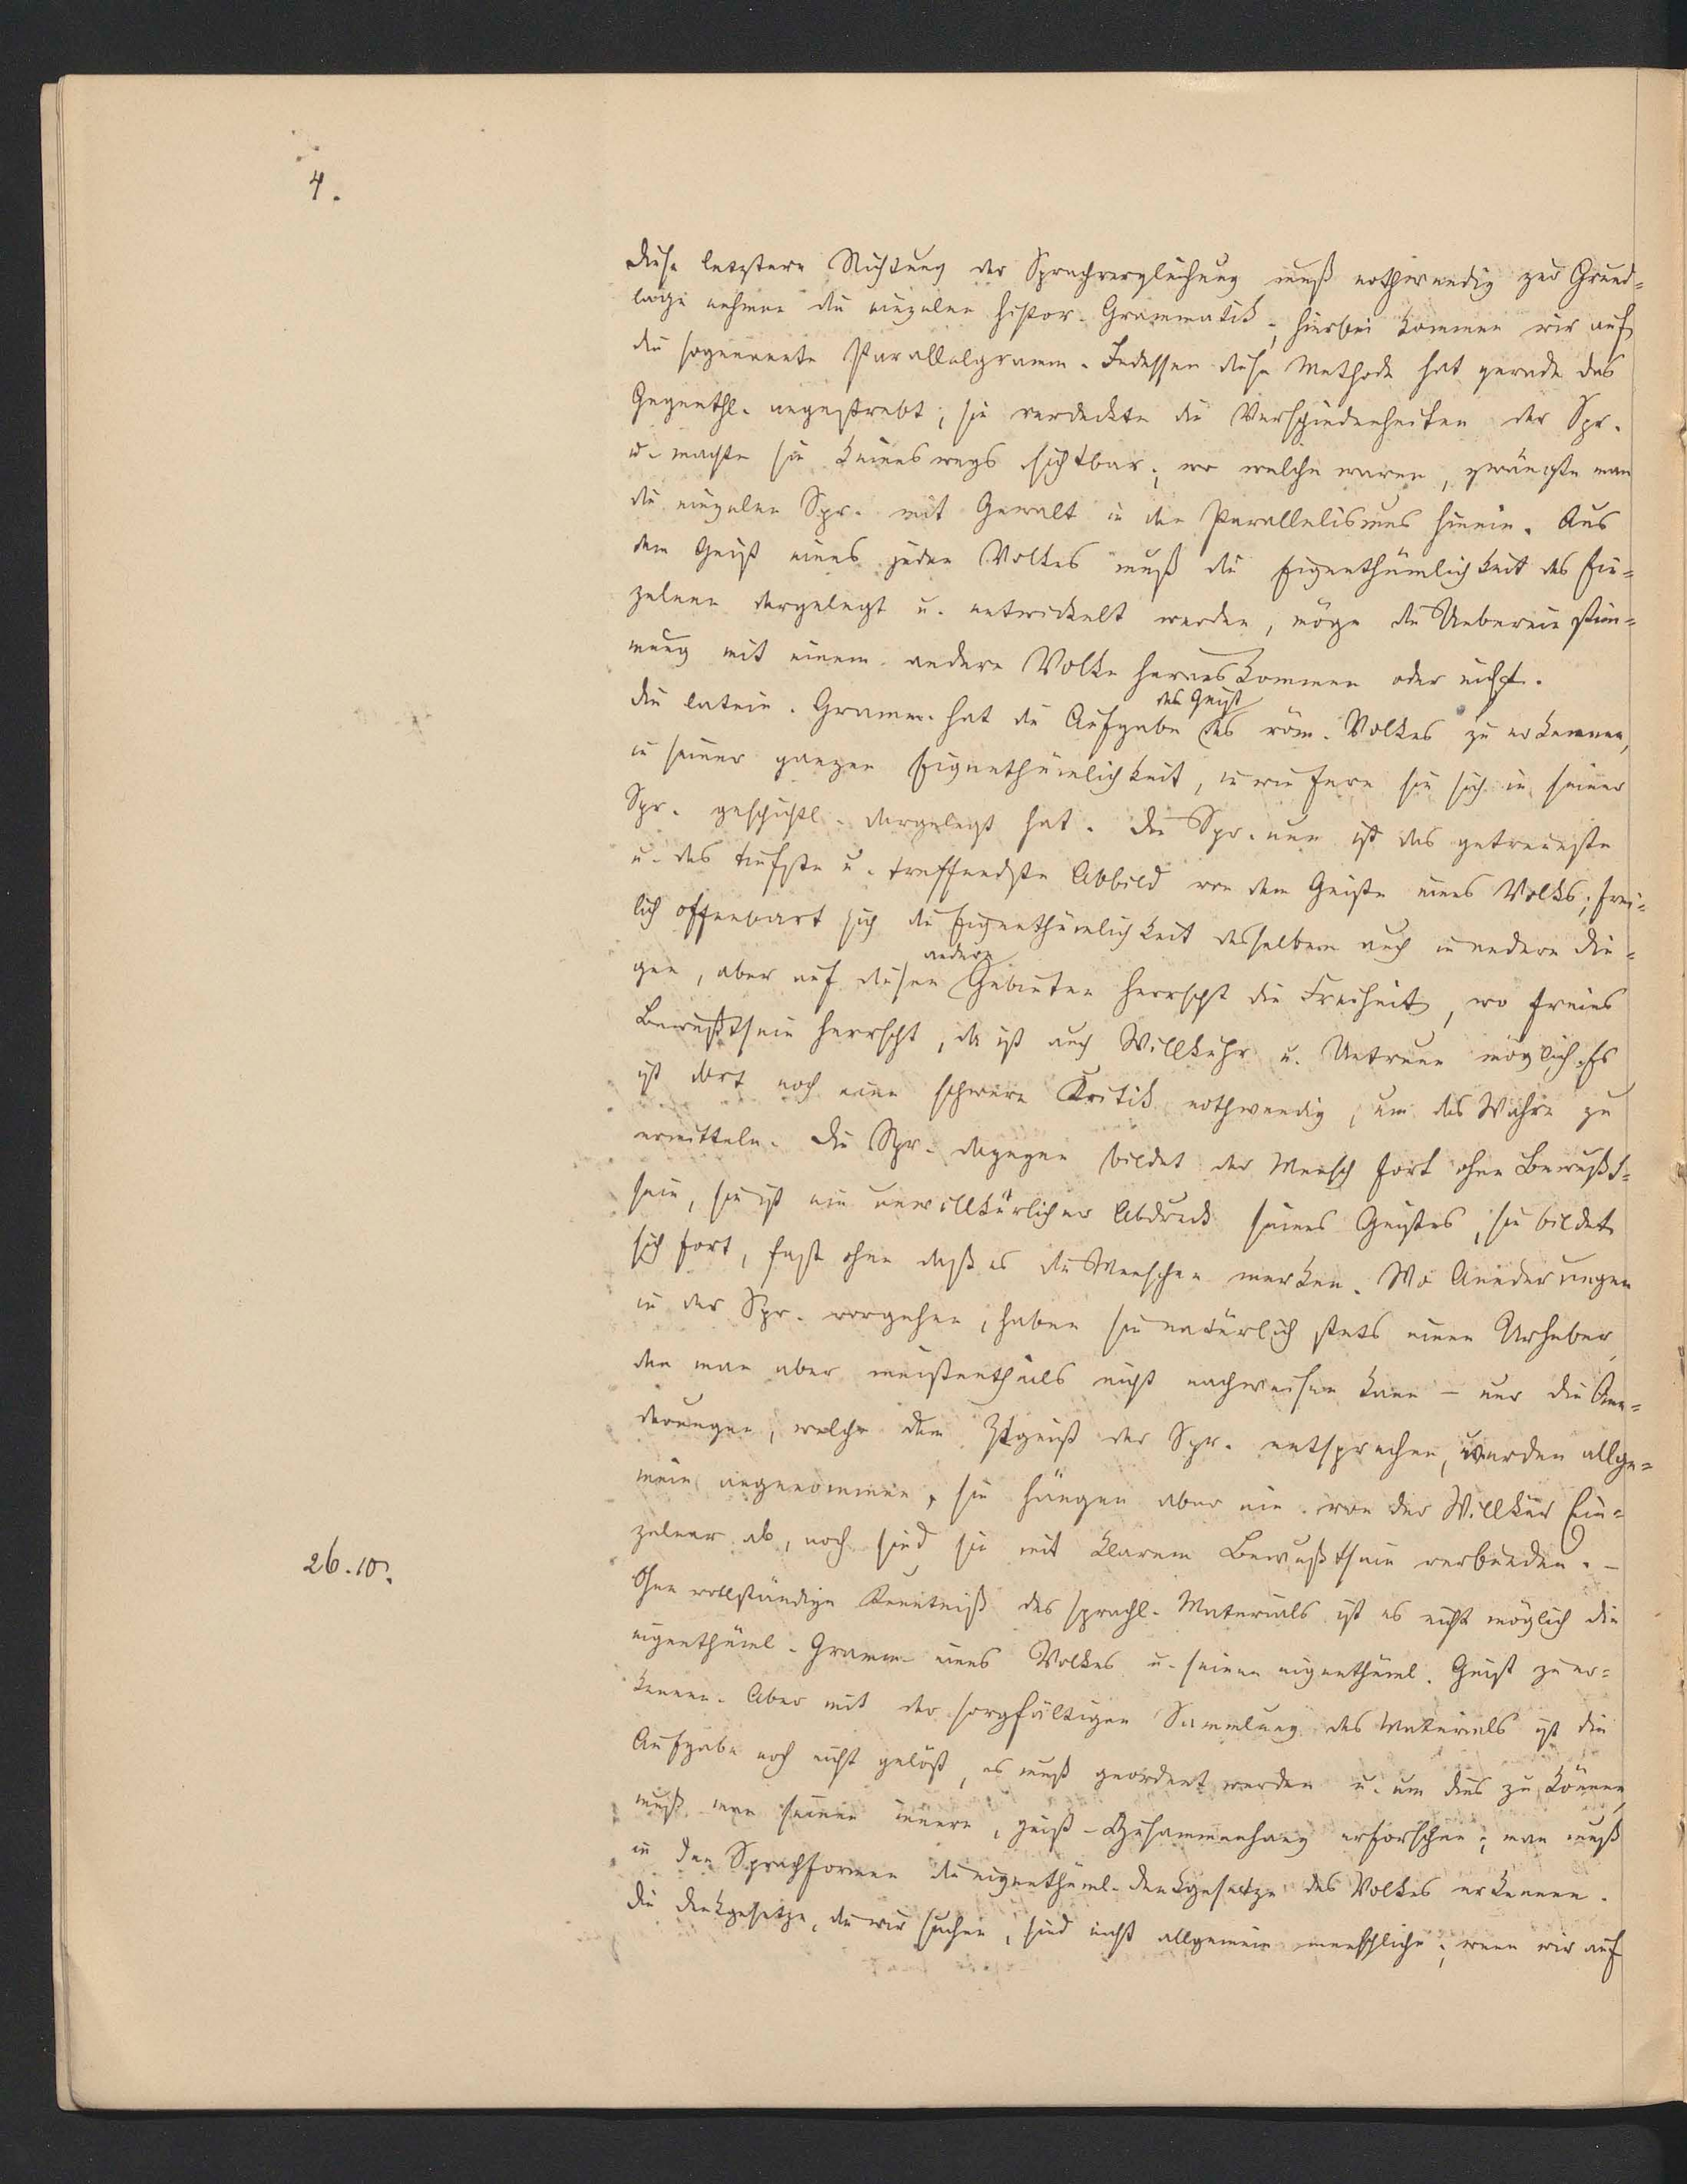 4.
Diese letztere Richtung der Sprachvergleichung muß nothwendig zur Grund=
lage nehmen die einzelnen histor. Grammatik; hierbei kommen wir auf
die sogenannte Parallelgramm. Indessen diese Methode hat gerade das
Gegenthl. angestrebt; sie verdeckte die Verschiedenheiten der Spr.
u. machte sie keineswegs sichtbar; wo welche waren, zwängte man
die einzelnen Spr. mit Gewalt in den Parallelismus hinein. Aus
dem Geist eines jeden Volkes muß die Eigenthümlichkeit des Ein=
zelnen dargelegt u. entwickelt werden, möge die Uebereinstim=
mung mit einem andern Volke herauskommen oder nicht.
Die latein. Gramm. hat die Aufgabe den Geist des röm. Volkes zu erkennen,
in seiner ganzen Eigenthümlichkeit, inwiefern sie sich in seiner
Spr. geschichtl. dargelegt hat. Die Spr. nun ist das getreueste
u. das tiefste u. treffendste Abbild von dem Geiste eines Volks; frei=
lich offenbart sich die Eigenthümlichkeit desselben auch in andern Din=
gen, aber auf diesen andern Gebieten herrscht die Freiheit, wo freies
Bewußtsein herrscht, da ist auch Willkühr u. Untreue möglich. Es
ist dort noch eine schwere Kritik nothwendig, um das Wahre zu
ermitteln. Die Spr. dagegen bildet der Mensch fort ohne Bewußt=
sein, sie ist ein unwillkürlicher Abdruck seines Geistes, sie bildet
sich fort, fast ohne daß es die Menschen merken. Wo Aenderungen
in der Spr. vorgehen, haben sie natürlich stets einen Urheber,
den man aber meistentheils nicht nachweisen kann – nur die Aen=
derungen, welche dem Ztgeist der Spr. entsprechen, werden allge=
mein angenommen, sie hängen aber nie von der Willkür Ein=
zelner ab, noch sind sie mit klarem Bewußtsein verbunden. –
26.10.
Ohne vollständige Kenntniß des sprachl. Materials ist es nicht möglich die
eigenthüml. Gramm. eines Volkes u. seinen eigenthüml. Geist zu er=
kennen. Aber mit der sorgfältigen Sammlung des Materials ist die
Aufgabe noch nicht gelöst, es muß geordnet werden u. um dies zu können,
muß man seinen innern, geist. Zusammenhang erforschen; man muß
in den Sprachformen die eigenthüml. Denkgesetze des Volkes erkennen.
Die Denkgesetze, die wir suchen, sind nicht allgemein menschliche; wenn wir auf